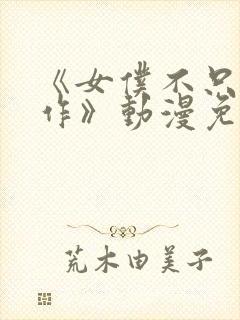 《女僕不只
作》動漫免
荒木由美子